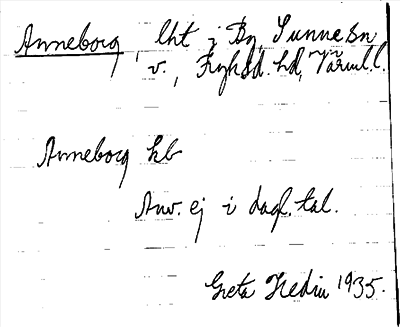 Anneborg, lht i By, Sunne sn
v., Fryksd. hd, Värml. l.
Anneborg kb
Anv. ej i dagl. tal.
Greta Hedin 1935.